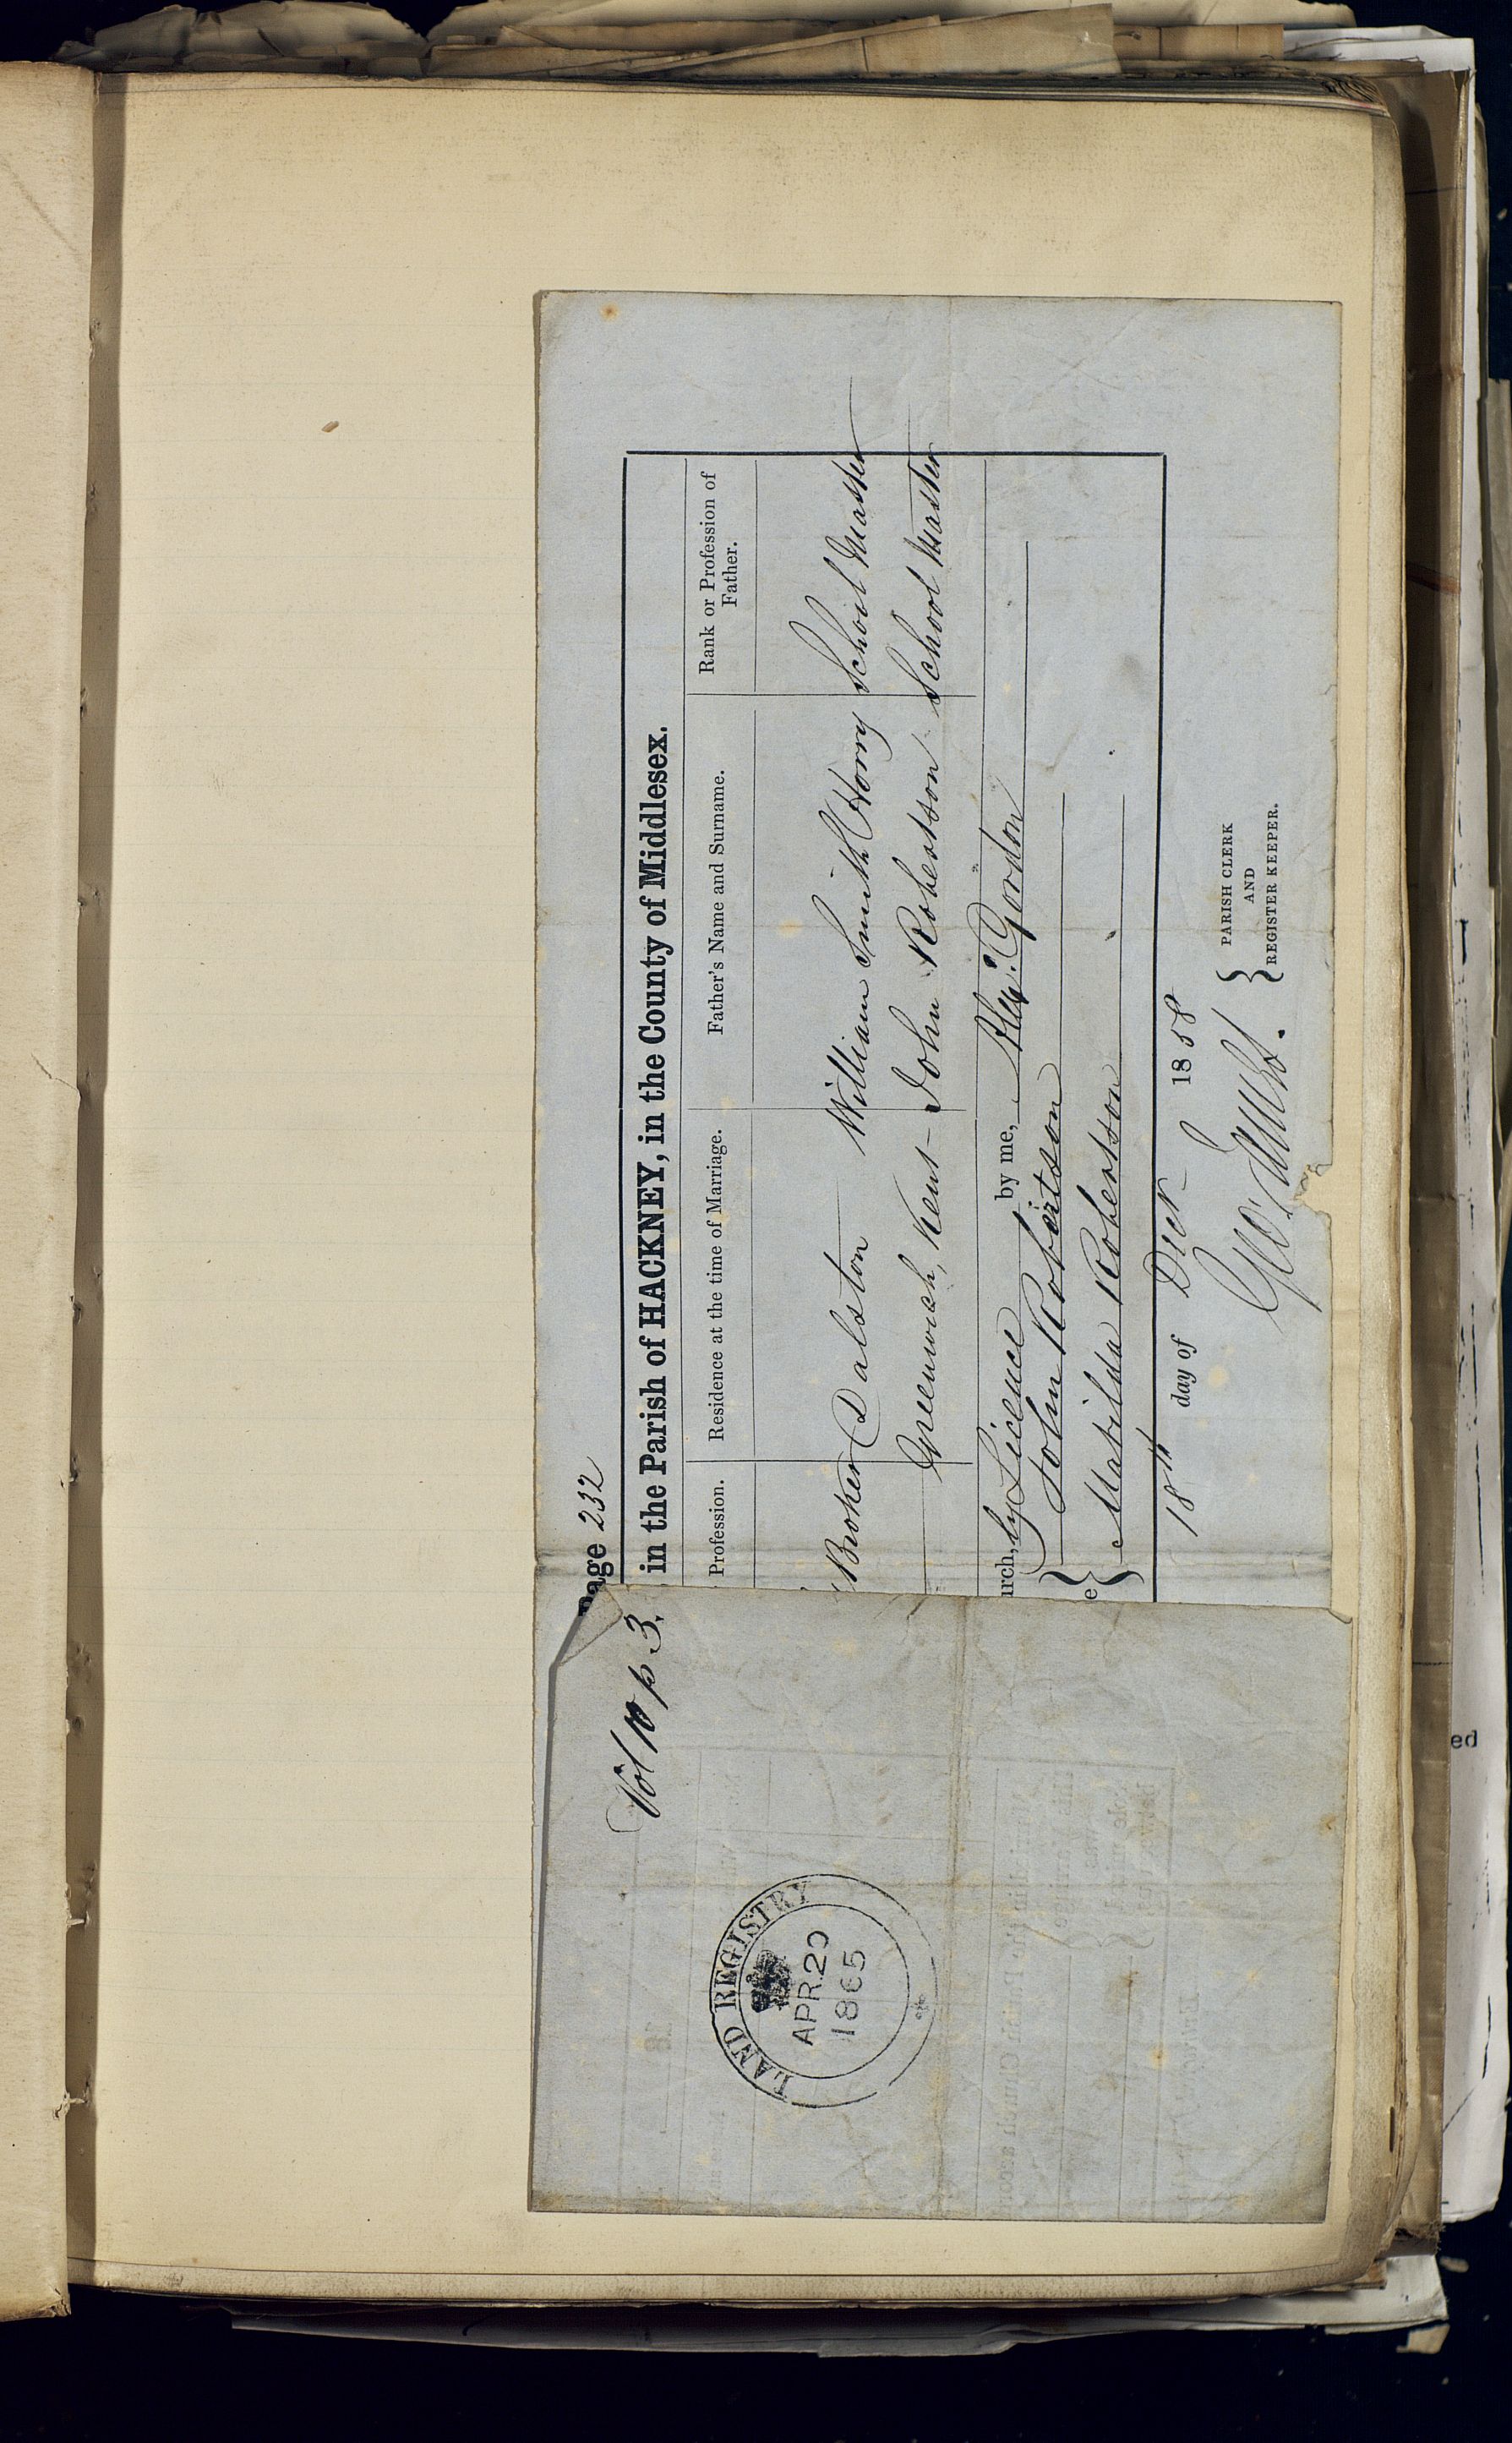 Page 232
in the Parish of HACKNEY, in the County of Middlesex.
Profession. Residence at the time of Marriage. Father's Name and Surname. Rank or Profession of Father.
Broker Dalston William Smith Horry School Master
Greenwich, Kent John Robertson School Master
urch, by Licence by me, Alexr. Gordon
John Robertson
e Matilda Robertson
18th day of Decr 1858
Geo.
PARISH CLERK
AND
REGISTER KEEPER.
Vol 10 p 3.
LAND REGISTRY
APR. 20
1865
ed